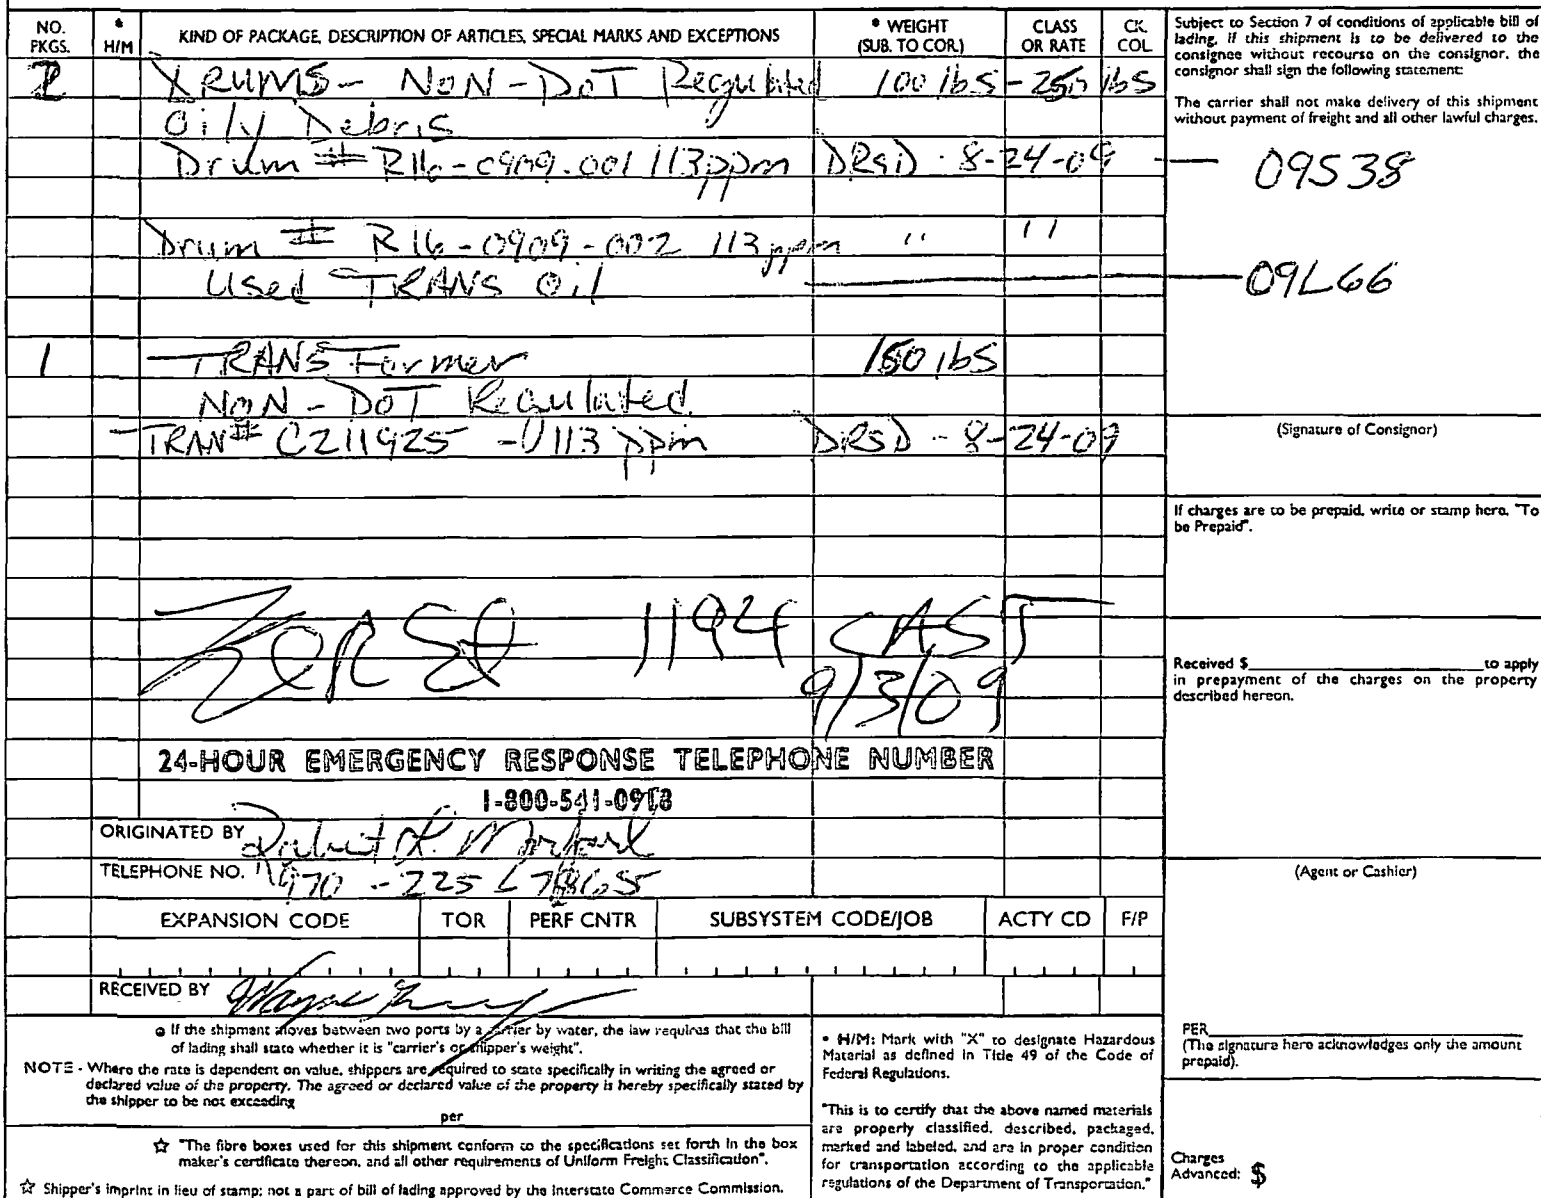 NO. PKGS.
* H/M
KIND OF PACKAGE, DESCRIPTION OF ARTICLES, SPECIAL MARKS AND EXCEPTIONS
* WEIGHT (SUB. TO COR.)
CLASS OR RATE
CK. COL.
2 DRUMS - NON-DOT Regulated 100 lbs - 250 lbs
Oily Debris
Drum # R16-0909-001 113 ppm DRSD - 8-24-09 — 09538
Drum # R16-0909-002 113 ppm " "
Used TRANS Oil — 09L66
1 TRANSFormer 150 lbs
NON-DOT Regulated
TRAN# C211925 - 113 ppm DRSD - 8-24-09
1194
9/3/09
24-HOUR EMERGENCY RESPONSE TELEPHONE NUMBER
1-800-541-0918
ORIGINATED BY Robert L.
TELEPHONE NO. 970-225-7865
EXPANSION CODE TOR PERF CNTR SUBSYSTEM CODE/JOB ACTY CD F/P
RECEIVED BY Wayne
If the shipment moves between two ports by a carrier by water, the law requires that the bill
of lading shall state whether it is "carrier's or shipper's weight".
NOTE - Where the rate is dependent on value, shippers are required to state specifically in writing the agreed or
declared value of the property. The agreed or declared value of the property is hereby specifically stated by
the shipper to be not exceeding
per
☆ "The fibre boxes used for this shipment conform to the specifications set forth in the box
maker's certificate thereon, and all other requirements of Uniform Freight Classification".
☆ Shipper's imprint in lieu of stamp; not a part of bill of lading approved by the Interstate Commerce Commission.
* H/M: Mark with "X" to designate Hazardous
Material as defined in Title 49 of the Code of
Federal Regulations.
"This is to certify that the above named materials
are properly classified, described, packaged,
marked and labeled, and are in proper condition
for transportation according to the applicable
regulations of the Department of Transportation."
Subject to Section 7 of conditions of applicable bill of
lading, if this shipment is to be delivered to the
consignee without recourse on the consignor, the
consignor shall sign the following statement:
The carrier shall not make delivery of this shipment
without payment of freight and all other lawful charges.
(Signature of Consignor)
If charges are to be prepaid, write or stamp here, "To
be Prepaid".
Received $ to apply
in prepayment of the charges on the property
described hereon.
(Agent or Cashier)
PER
(The signature here acknowledges only the amount
prepaid).
Charges
Advanced: $